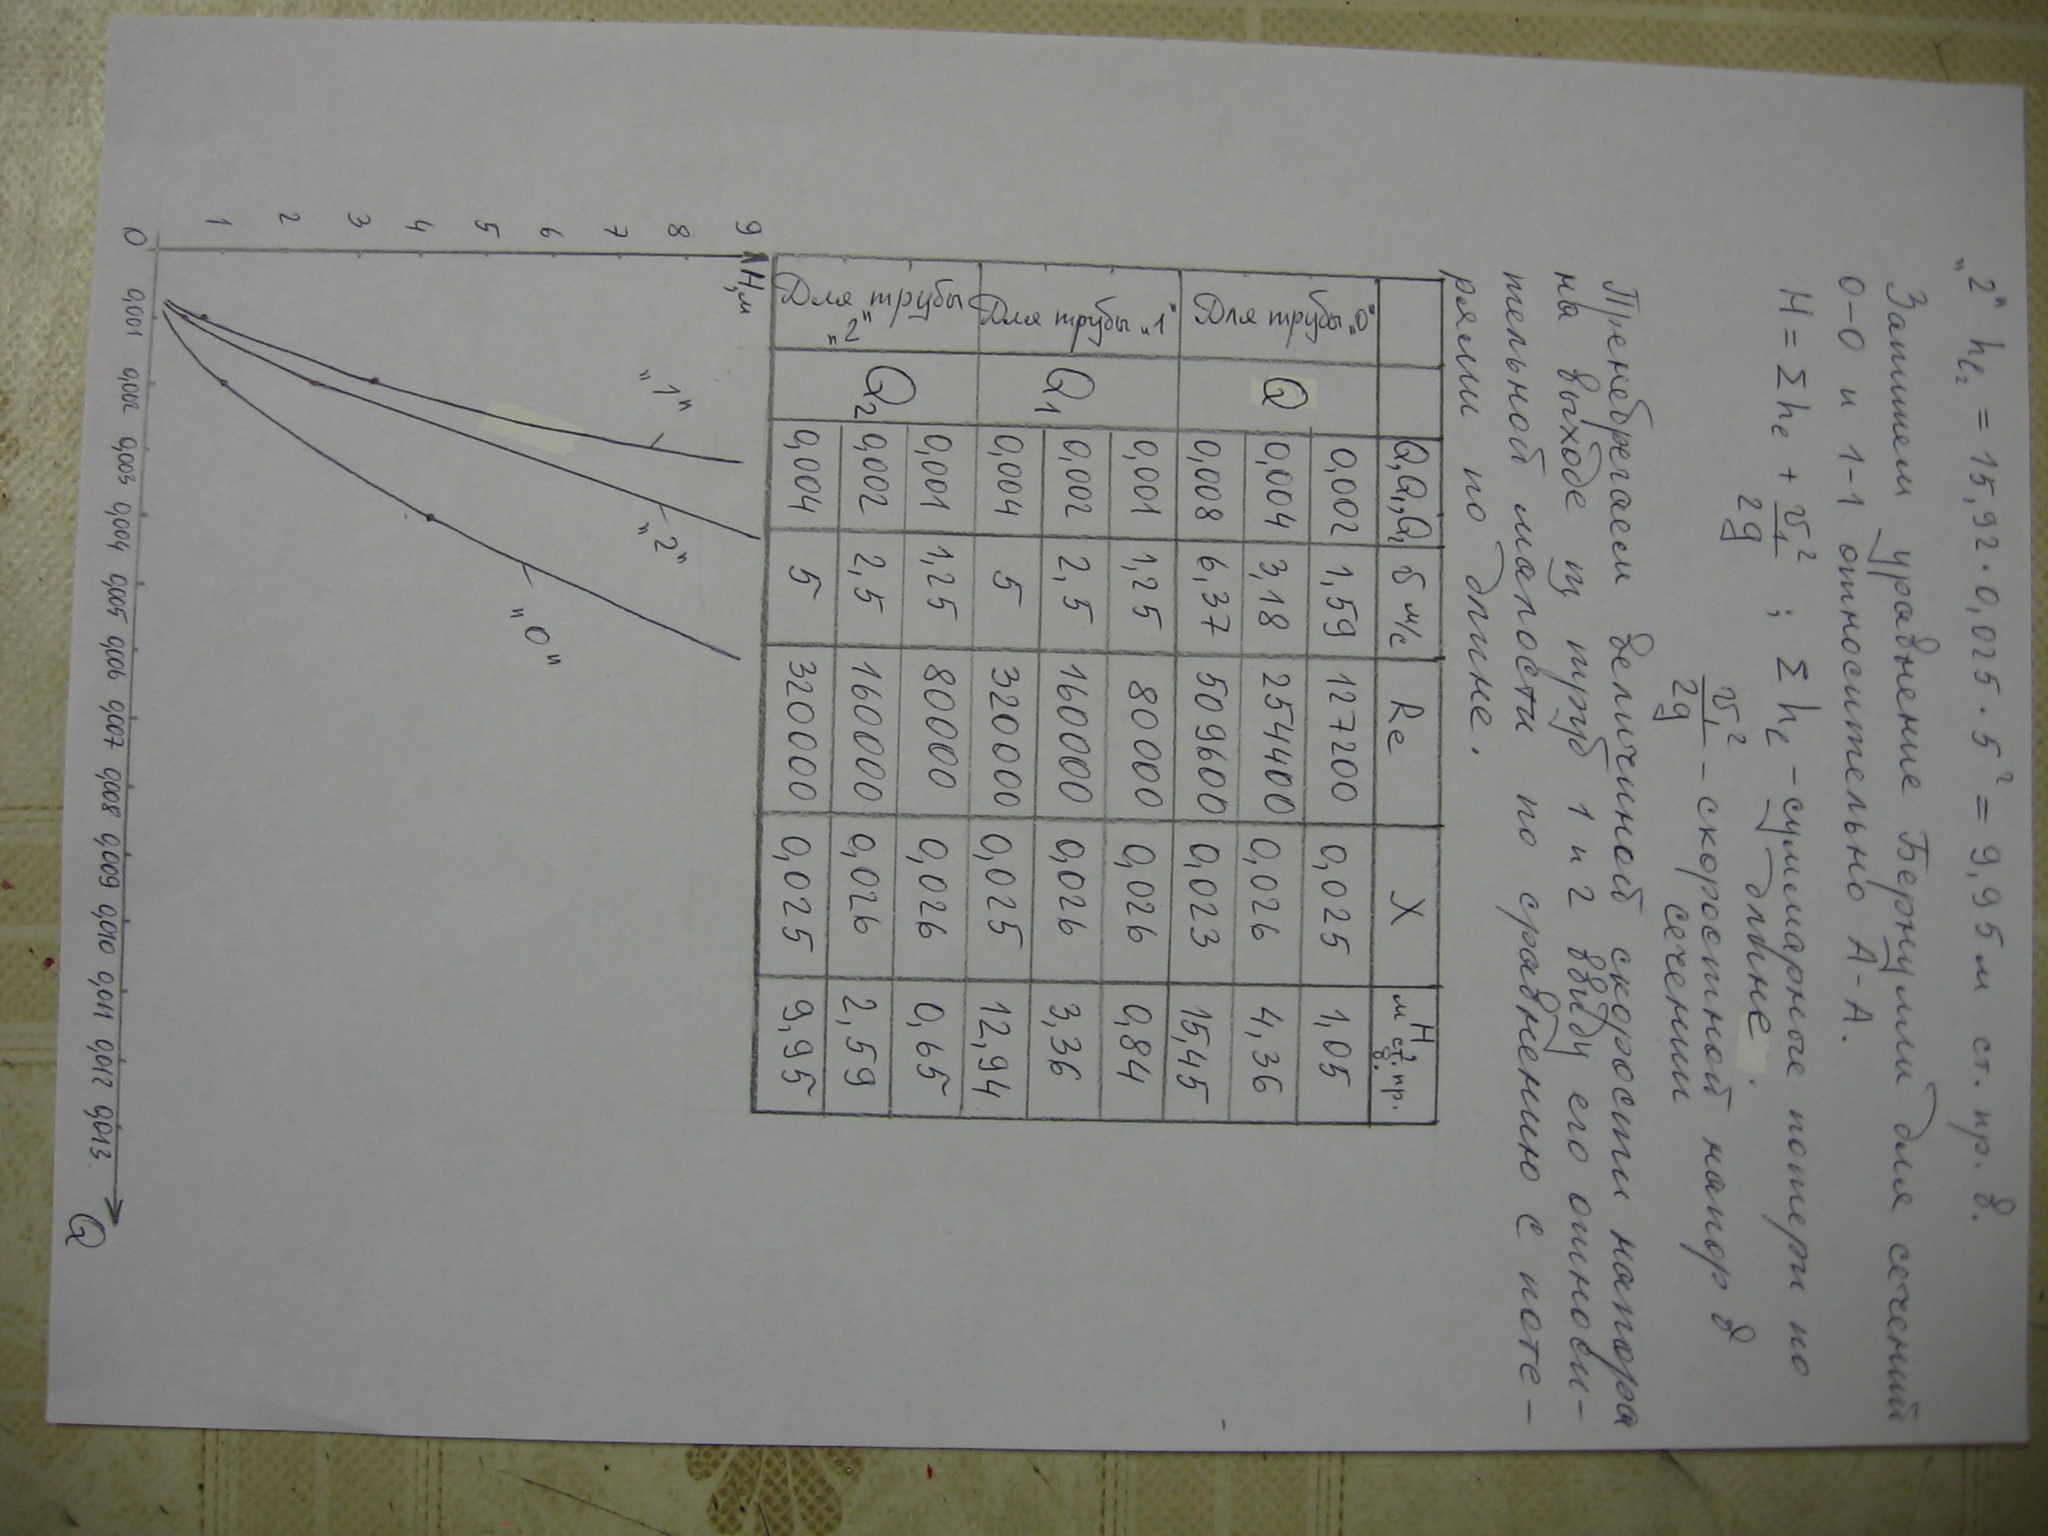 „2" hℓ₂ = 15,92 · 0,025 · 5² = 9,95 м ст. пр. в.
Запишем уравнение Бернулли для сечений
0-0 и 1-1 относительно А-А.
H = Σhℓ + v₁²/2g ; Σhℓ - суммарные потери по
длине.
v₁²/2g - скоростной напор в
сечении
Пренебрегаем величиной скорости напора
на выходе из труб 1 и 2 ввиду его относи-
тельной малости по сравнению с поте-
рями по длине.
Q, Q₁, Q₂ v м/с Re λ H, м ст. пр. в.
Для трубы „0" Q 0,002 1,59 127200 0,025 1,05
0,004 3,18 254400 0,026 4,36
0,008 6,37 509600 0,023 15,45
Для трубы „1" Q₁ 0,001 1,25 80000 0,026 0,84
0,002 2,5 160000 0,026 3,36
0,004 5 320000 0,025 12,94
Для трубы „2" Q₂ 0,001 1,25 80000 0,026 0,65
0,002 2,5 160000 0,026 2,59
0,004 5 320000 0,025 9,95
H, м
9
8
7
6
5
4
3
2
1
0
„1"
„2"
„0"
0,001 0,002 0,003 0,004 0,005 0,006 0,007 0,008 0,009 0,010 0,011 0,012 0,013
Q